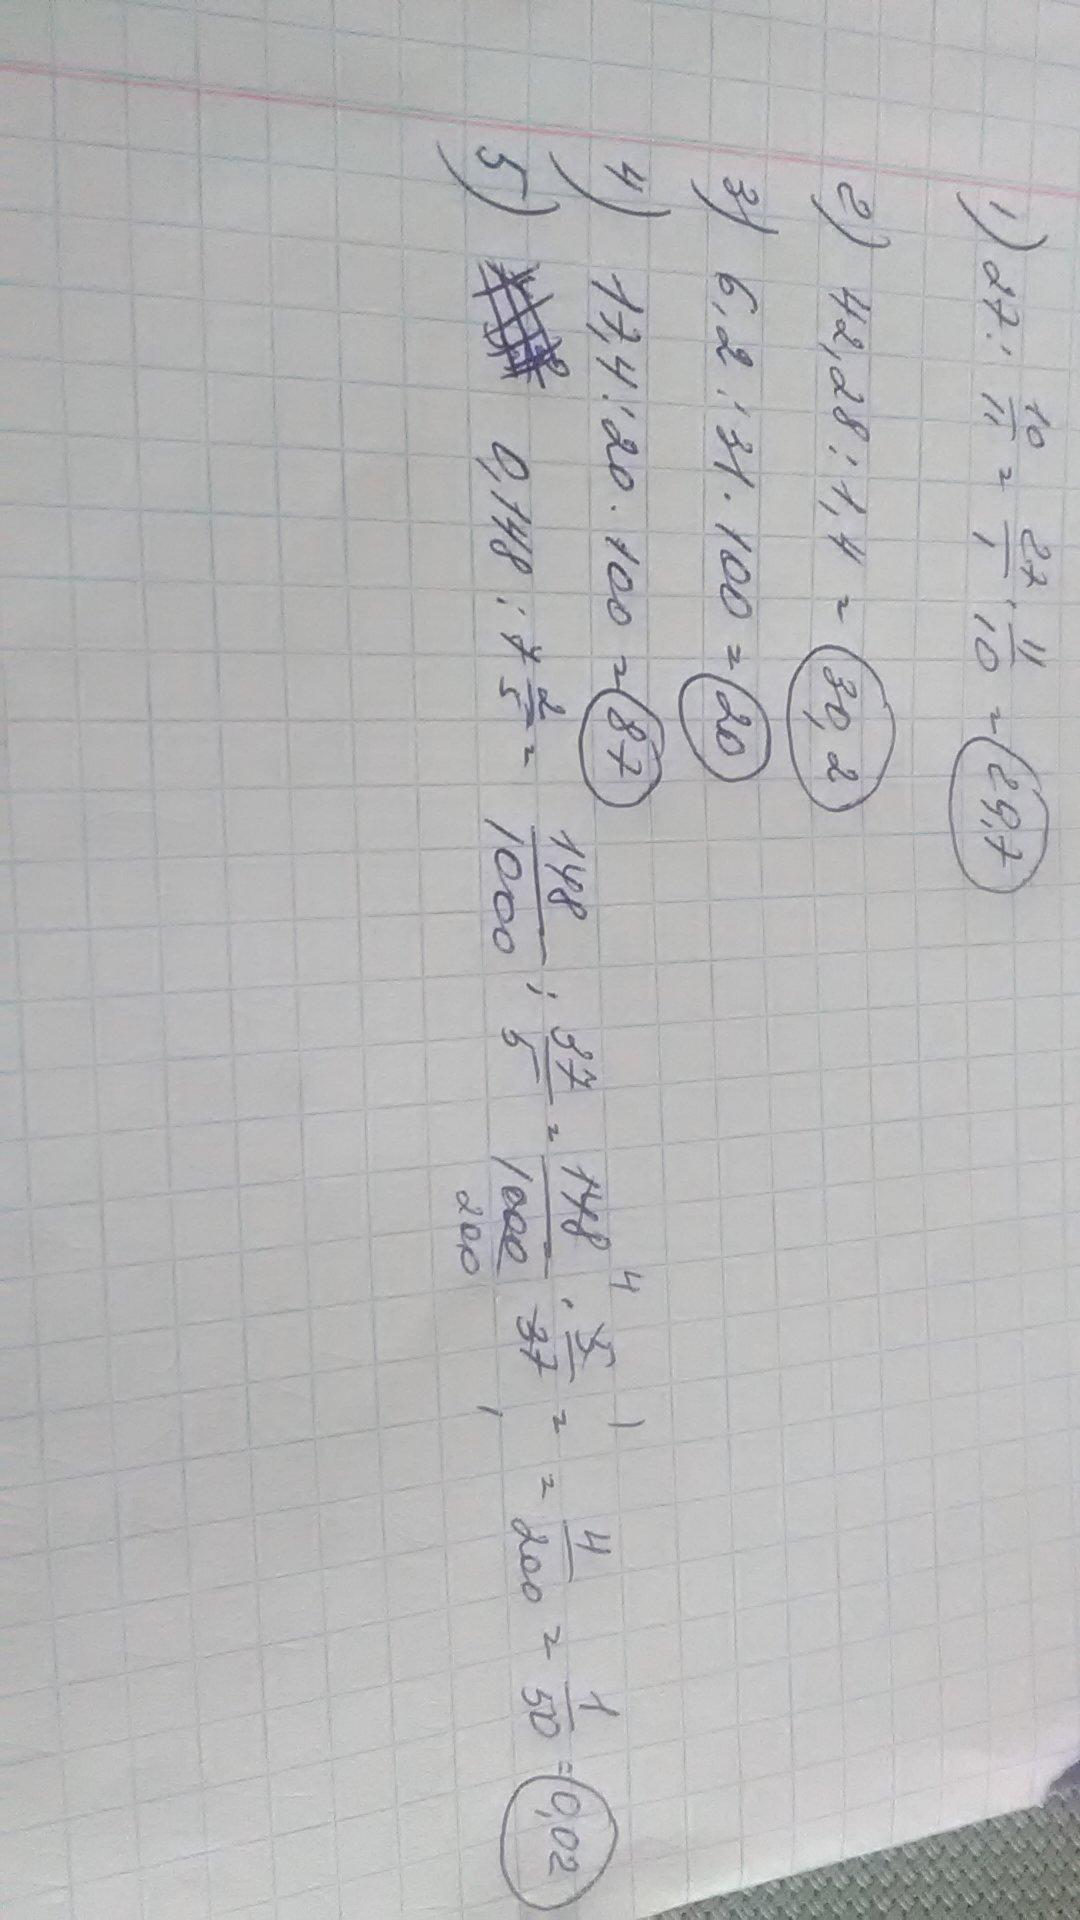 1) 27 : 10/11 = 27/1 · 11/10 = 29,7
2) 42,28 : 1,4 = 30,2
3) 6,2 : 31 · 100 = 20
4) 17,4 : 20 · 100 = 87
5) 0,148 : 7 2/5 = 148/1000 : 37/5 = 148/1000 · 5/37 = = 4/200 = 1/50 = 0,02
4 1
200 1